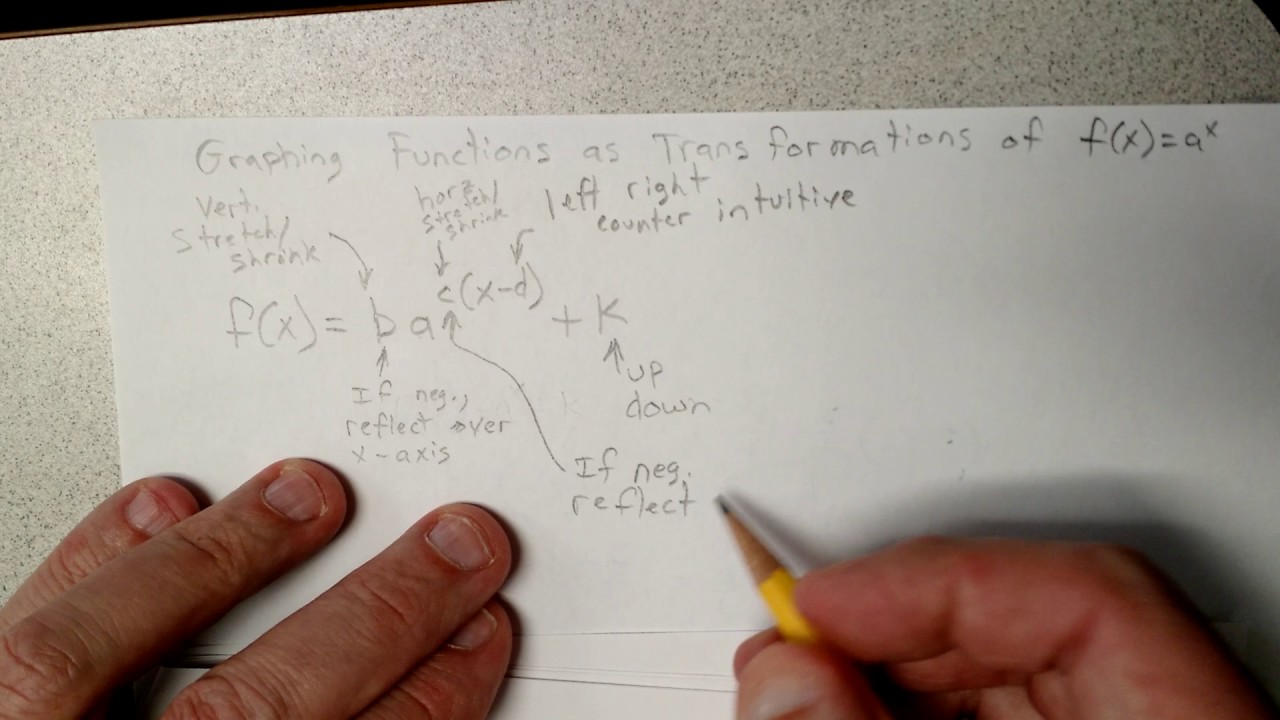 Graphing Functions as Transformations of f(x)=a^x
Vert.
stretch/
shrink
horz
stretch/
shrink
left right
counter intuitive
f(x)= b a^c(x-d) + k
If neg.,
reflect over
x-axis
up
down
If neg.
reflect